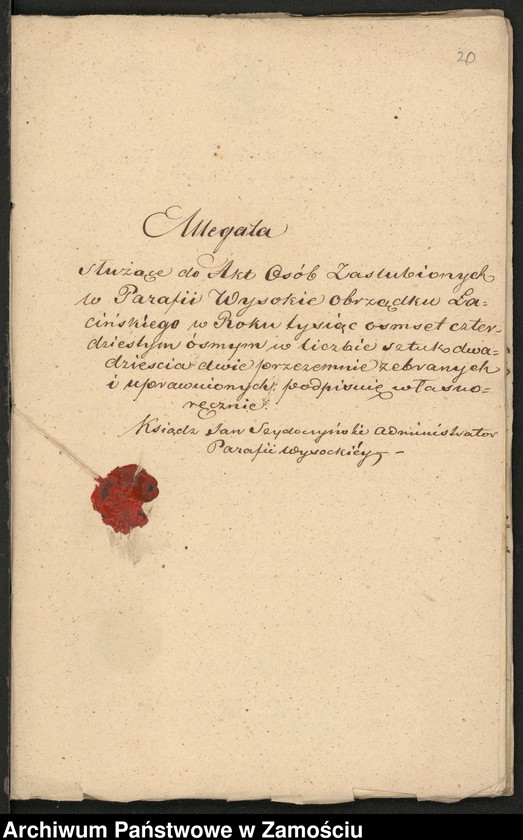 20
Allegata
służące do Akt Osób Zaslubionych
w Parafii Wysokie obrządku Ła=
cińskiego w Roku tysiąc osmset czter=
dziestym ósmym w liczbie sztuk dwa=
dziescia dwie przezemnie zebranych
i uprawnionych, podpisuię własno=
ręcznie.
Ksiądz Jan Szydoczyński Administrator
Parafii Wysockiéy –
Archiwum Państwowe w Zamościu